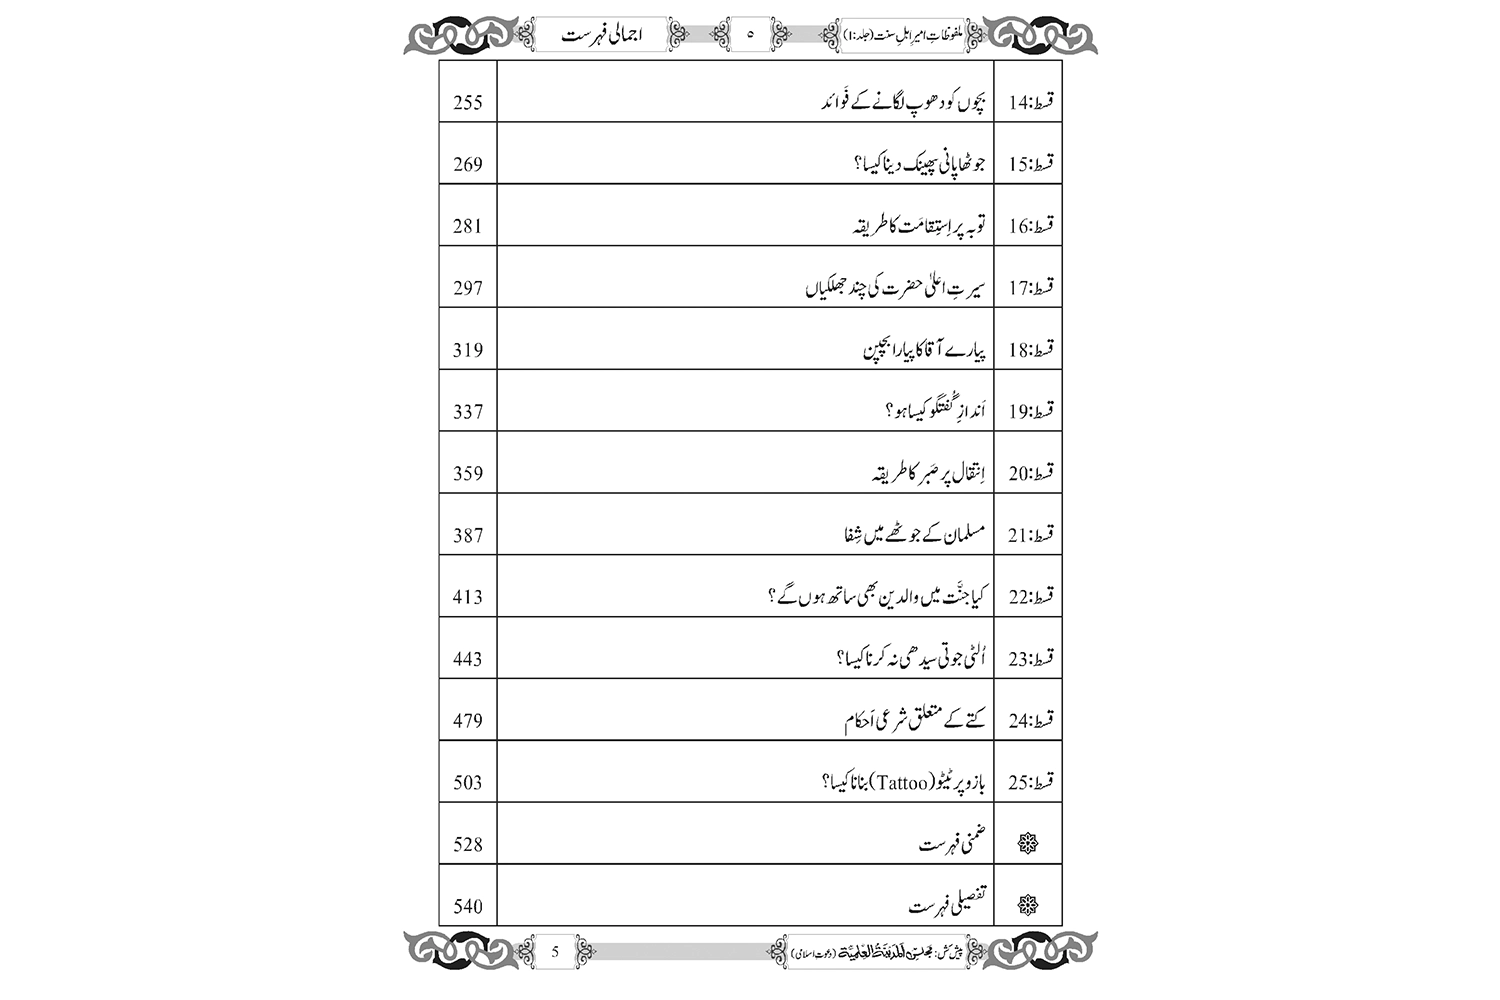 ملفوظاتِ امیرِ اہلِ سنت (جلد:1) ٥ اجمالی فہرست
قسط:14 بچوں کو دھوپ لگانے کے فَوائد 255
قسط:15 جوٹھا پانی پھینک دینا کیسا؟ 269
قسط:16 توبہ پر اِستِقامَت کا طریقہ 281
قسط:17 سیرتِ اعلیٰ حضرت کی چند جھلکیاں 297
قسط:18 پیارے آقا کا پیارا بچپن 319
قسط:19 اَندازِ گُفتگو کیسا ہو؟ 337
قسط:20 اِنتقال پر صَبر کا طریقہ 359
قسط:21 مسلمان کے جوٹھے میں شِفا 387
قسط:22 کیا جنَّت میں والدین بھی ساتھ ہوں گے؟ 413
قسط:23 اُلٹی جوتی سیدھی نہ کرنا کیسا؟ 443
قسط:24 کتے کے متعلق شرعی اَحکام 479
قسط:25 بازو پر ٹیٹو (Tattoo) بنانا کیسا؟ 503
ضمنی فہرست 528
تفصیلی فہرست 540
پیش کش: مجلس المدینۃ العلمیۃ (دعوتِ اسلامی) 5